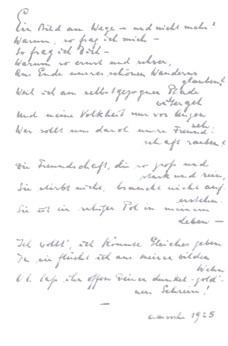 Ein Bild am Wege – und nicht mehr?
Warum, so frag ich mich –
So frag ich Dich –
Warum so ernst und schwer,
Am Ende unsres schönen Wanderns
glauben?
Weil ich am selbstgezognen Pfade
Und meine Volkheit nur vor Augen
seh.
Wer wollt uns darob unsre Freund-
schaft rauben?
Die Freundschaft, die so groß und
stark und rein,
Sie stirbt nicht, braucht nicht auf-
erstehen.
Sie ist ein ruhiger Pol in meinem
Leben –
Ich wollt', ich könnte Gleiches geben
Da ein flücht ich aus meinen wilden
Wehn
laß ihn offen Deiner dunkel-gold'-
nen Schrein!
–
1925